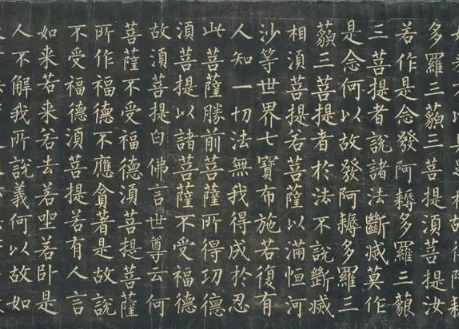 多羅三藐三菩提須菩提汝
若作是念發阿耨多羅三藐
三菩提者說諸法斷滅莫作
是念何以故發阿耨多羅三
藐三菩提者於法不說斷滅
相須菩提若菩薩以滿恒河
沙等世界七寶布施若復有
人知一切法無我得成於忍
此菩薩勝前菩薩所得功德
須菩提以諸菩薩不受福德
故須菩提白佛言世尊云何
菩薩不受福德須菩提菩薩
所作福德不應貪著是故說
不受福德須菩提若有人言
如来若来若去若坐若卧是
人不解我所說義何以故如